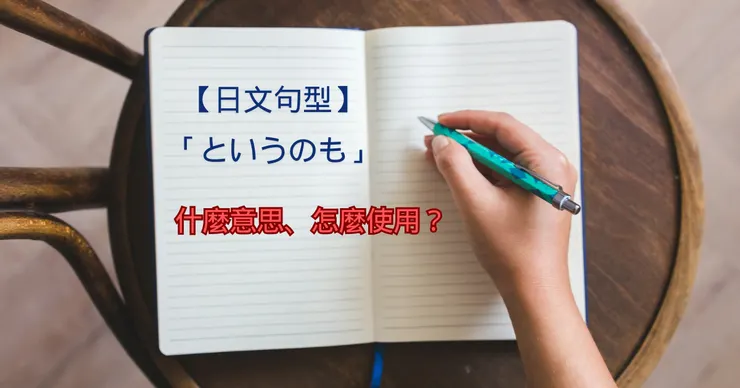 【日文句型】
「というのも」
什麼意思、怎麼使用？